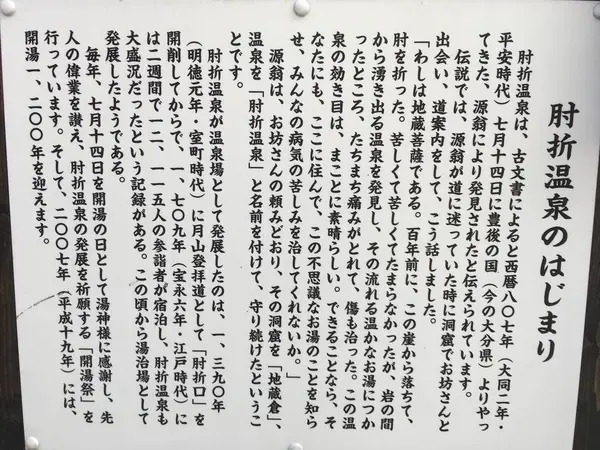 肘折温泉のはじまり
肘折温泉は、古文書によると西暦八〇七年(大同二年・
平安時代)七月十四日に豊後の国(今の大分県)よりやっ
てきた、源翁により発見されたと伝えられています。
伝説では、源翁が道に迷っていた時に洞窟でお坊さんと
出会い、道案内をして、こう話しました。
「わしは地蔵菩薩である。百年前に、この崖から落ちて、
肘を折った。苦しくて苦しくてたまらなかったが、岩の間
から湧き出る温泉を発見し、その流れる温かなお湯につか
ったところ、たちまち痛みがとれて、傷も治った。この温
泉の効き目は、まことに素晴らしい。できることなら、そ
なたにも、ここに住んで、この不思議なお湯のことを知ら
せ、みんなの病気の苦しみを治してくれないか。」
源翁は、お坊さんの頼みどおり、その洞窟を「地蔵倉」、
温泉を「肘折温泉」と名前を付けて、守り続けたというこ
とです。
肘折温泉が温泉場として発展したのは、一、三九〇年
(明徳元年・室町時代)に月山登拝道として「肘折口」を
開削してからで、一、七〇九年(宝永六年・江戸時代)に
は二週間で一二、一一五人の参詣者が宿泊し、肘折温泉も
大盛況だったという記録がある。この頃から湯治場として
発展したようである。
毎年、七月十四日を開湯の日として湯神様に感謝し、先
人の偉業を讃え、肘折温泉の発展を祈願する「開湯祭」を
行っています。そして、二〇〇七年(平成十九年)には、
開湯一、二〇〇年を迎えます。